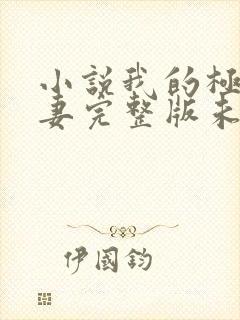 小說我的極
妻完整版未
伊國鈞